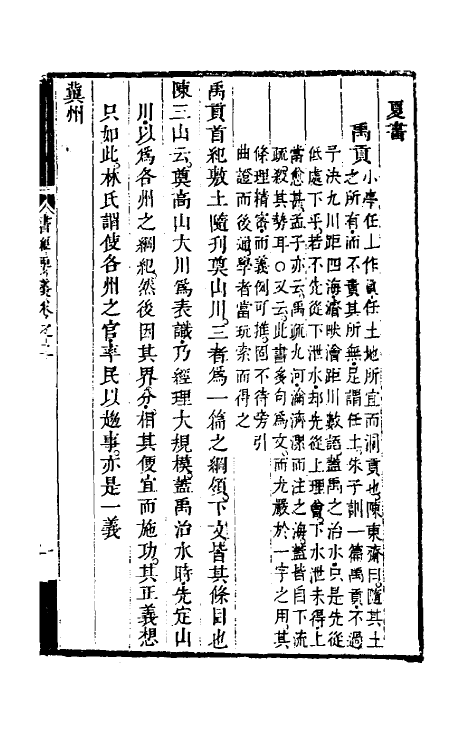 夏書
禹貢
小序任土作貢任土地所宜而洞貢也陳東齋曰隨其土
之所有而不責其所無是謂任土朱子訓一篇禹貢不過
予決九川距四海濬畎澮距川數語蓋禹之治水只是先從
低處下手若不先從下泄水却先從上理會下水泄未得上
當愈甚孟子亦云禹疏九河瀹濟漯而注之海蓋皆自下流
疏殺其勢耳○又云此書多句爲文而尤嚴於一字之用其
條理精密而義例可推固不待旁引
曲證而後通學者當玩索而得之
禹貢首紀敷土隨刊奠山川三者爲一篇之綱領下文皆其條目也
陳三山云奠高山大川爲表識乃經理大規模蓋禹治水時先定山
川以爲各州之綱紀然後因其界分相其便宜而施功其正義想
只如此林氏謂使各州之官率民以趨事亦是一義
冀州
書經義卷之